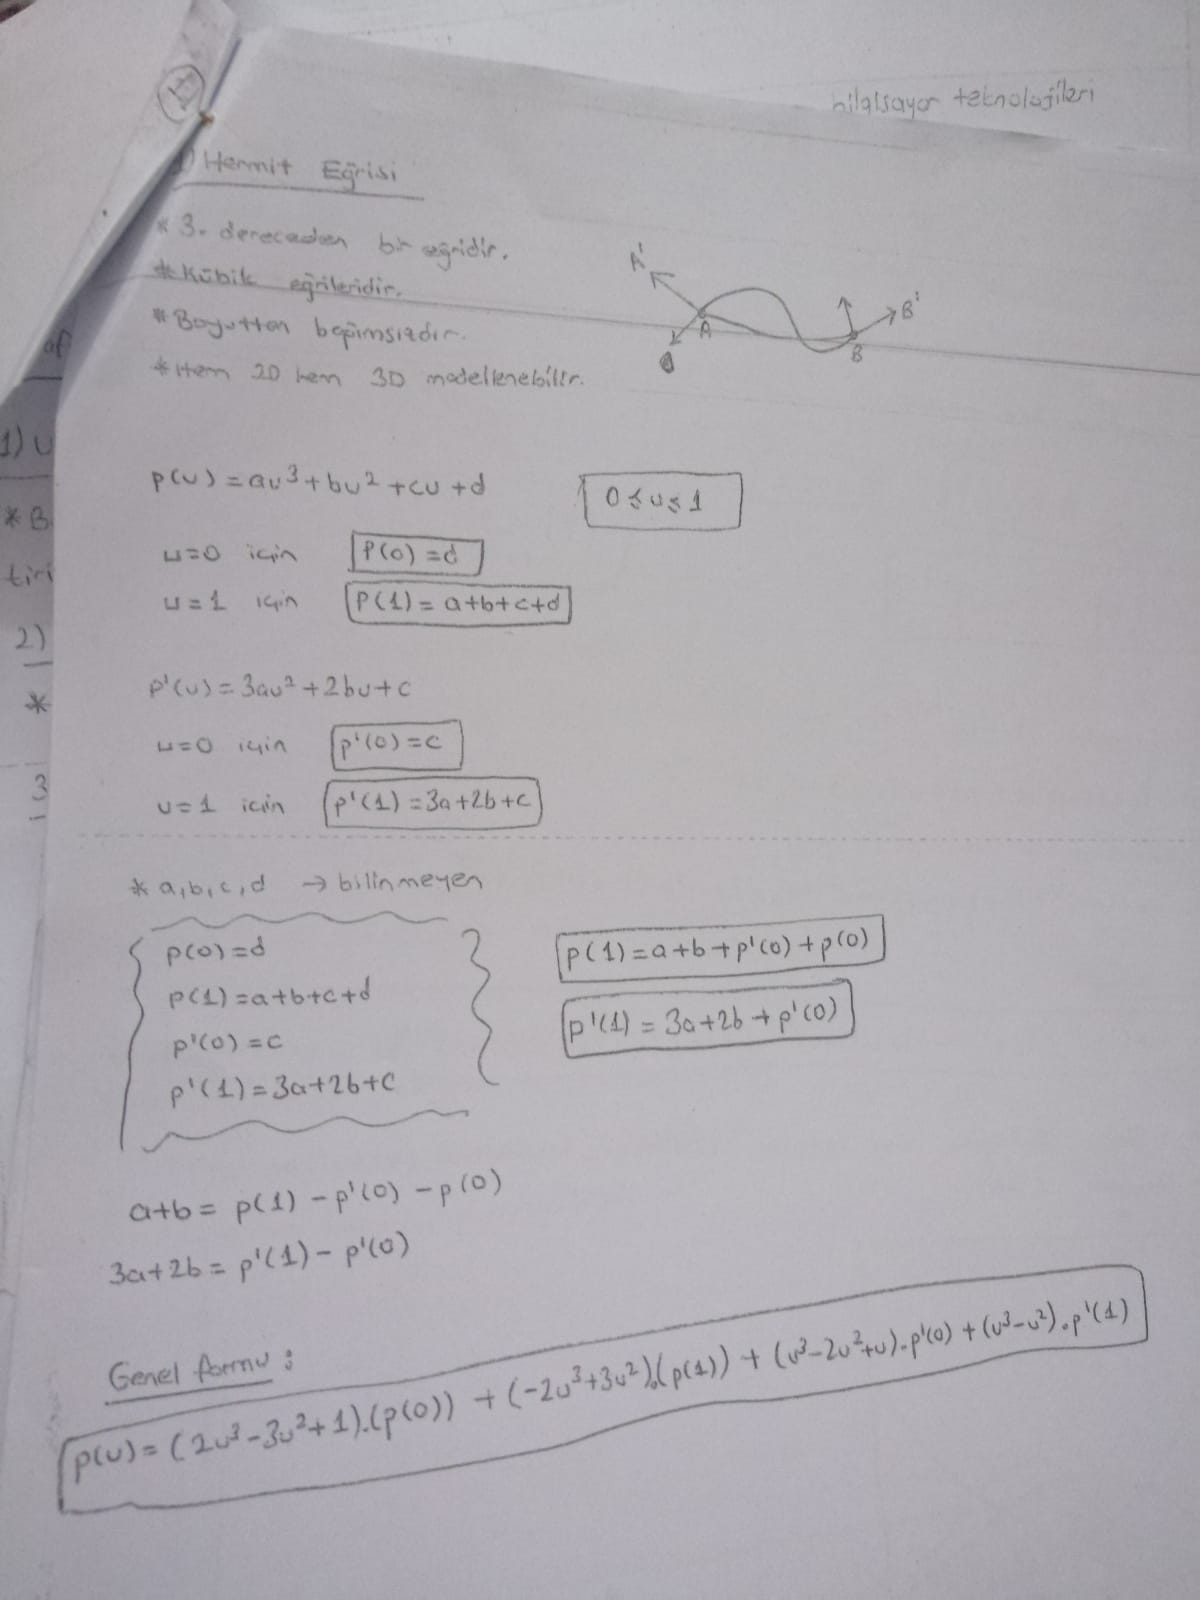 bilgisayar teknolojileri
1) Hermit Eğrisi
* 3. dereceden bir eğridir.
* Kübik eğrileridir.
* Boyuttan bağımsızdır.
* Hem 2D hem 3D modellenebilir.
A'
A
B'
B
af
1) U
* B
tiri
2)
*
3
p(u) = au³ + bu² + cu + d
0 ≤ u ≤ 1
u=0 için P(0) = d
u=1 için P(1) = a+b+c+d
p'(u) = 3au² + 2bu + c
u=0 için p'(0) = c
u=1 için p'(1) = 3a+2b+c
* a,b,c,d → bilinmeyen
p(0) = d
p(1) = a+b+c+d
p'(0) = c
p'(1) = 3a+2b+c
p(1) = a+b+p'(0)+p(0)
p'(1) = 3a+2b+p'(0)
a+b = p(1) - p'(0) - p(0)
3a+2b = p'(1) - p'(0)
Genel formu :
p(u) = (2u³-3u²+1).(p(0)) + (-2u³+3u²).(p(1)) + (u³-2u²+u).p'(0) + (u³-u²).p'(1)